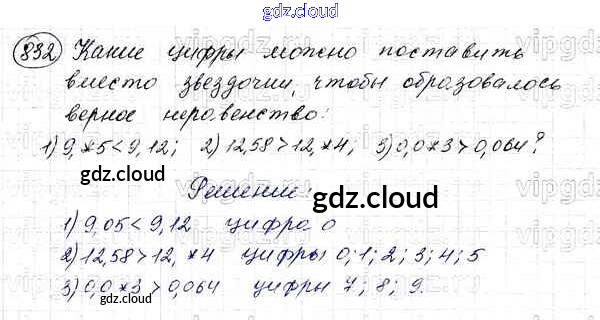 gdz.cloud
832 Какие цифры можно поставить
вместо звездочки, чтобы образовалось
верное неравенство:
1) 9,*5 < 9,12; 2) 12,58 > 12,*4; 3) 0,0*3 > 0,064?
Решение:
gdz.cloud
gdz.cloud
1) 9,05 < 9,12 цифра 0
2) 12,58 > 12,*4 цифры 0; 1; 2; 3; 4; 5
3) 0,0*3 > 0,064 цифры 7; 8; 9.
gdz.cloud
gdz.cloud